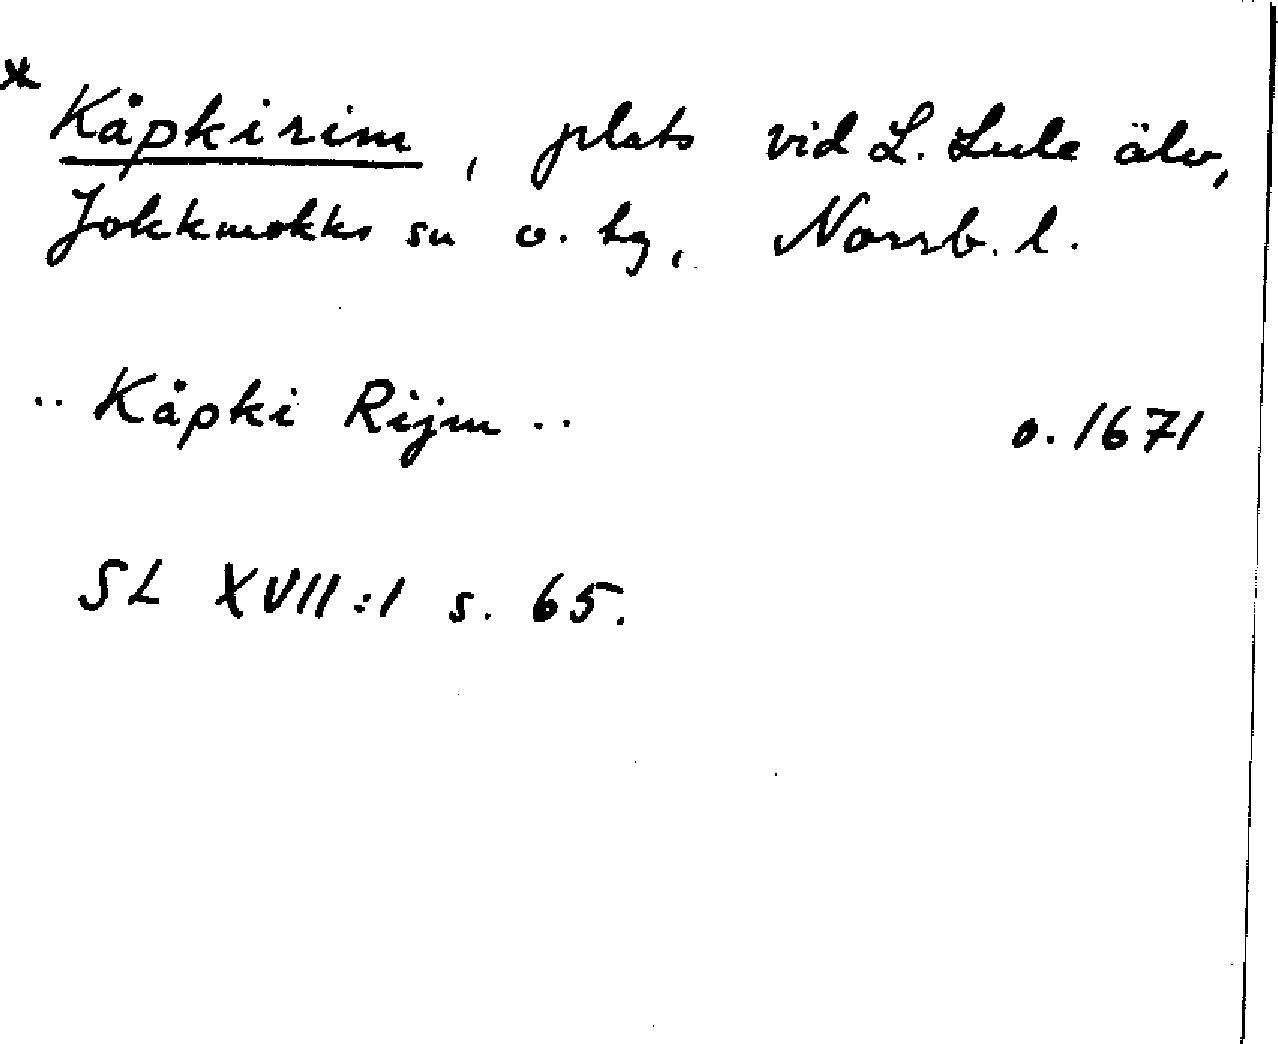 * Kåpkirim, plats vid L. Lule älv,
Jokkmokks sn o. hg, Norrb. l.
.. Kåpki Rijm .. o. 1671
SL XVII:1 s. 65.